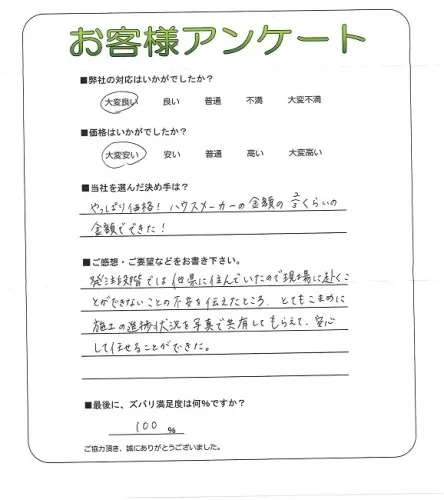 お客様アンケート
■弊社の対応はいかがでしたか？
大変良い 良い 普通 不満 大変不満
■価格はいかがでしたか？
大変安い 安い 普通 高い 大変高い
■当社を選んだ決め手は？
やっぱり価格！ ハウスメーカーの金額の2/3くらいの
金額でできた！
■ご感想・ご要望などをお書き下さい。
発注段階では他県に住んでいたので現場に赴くこ
とができないことの不安を伝えたところ、とてもこまめに
施工の進捗状況を写真で共有してもらえて、安心
して任せることができた。
■最後に、ズバリ満足度は何％ですか？
100 %
ご協力頂き、誠にありがとうございました。